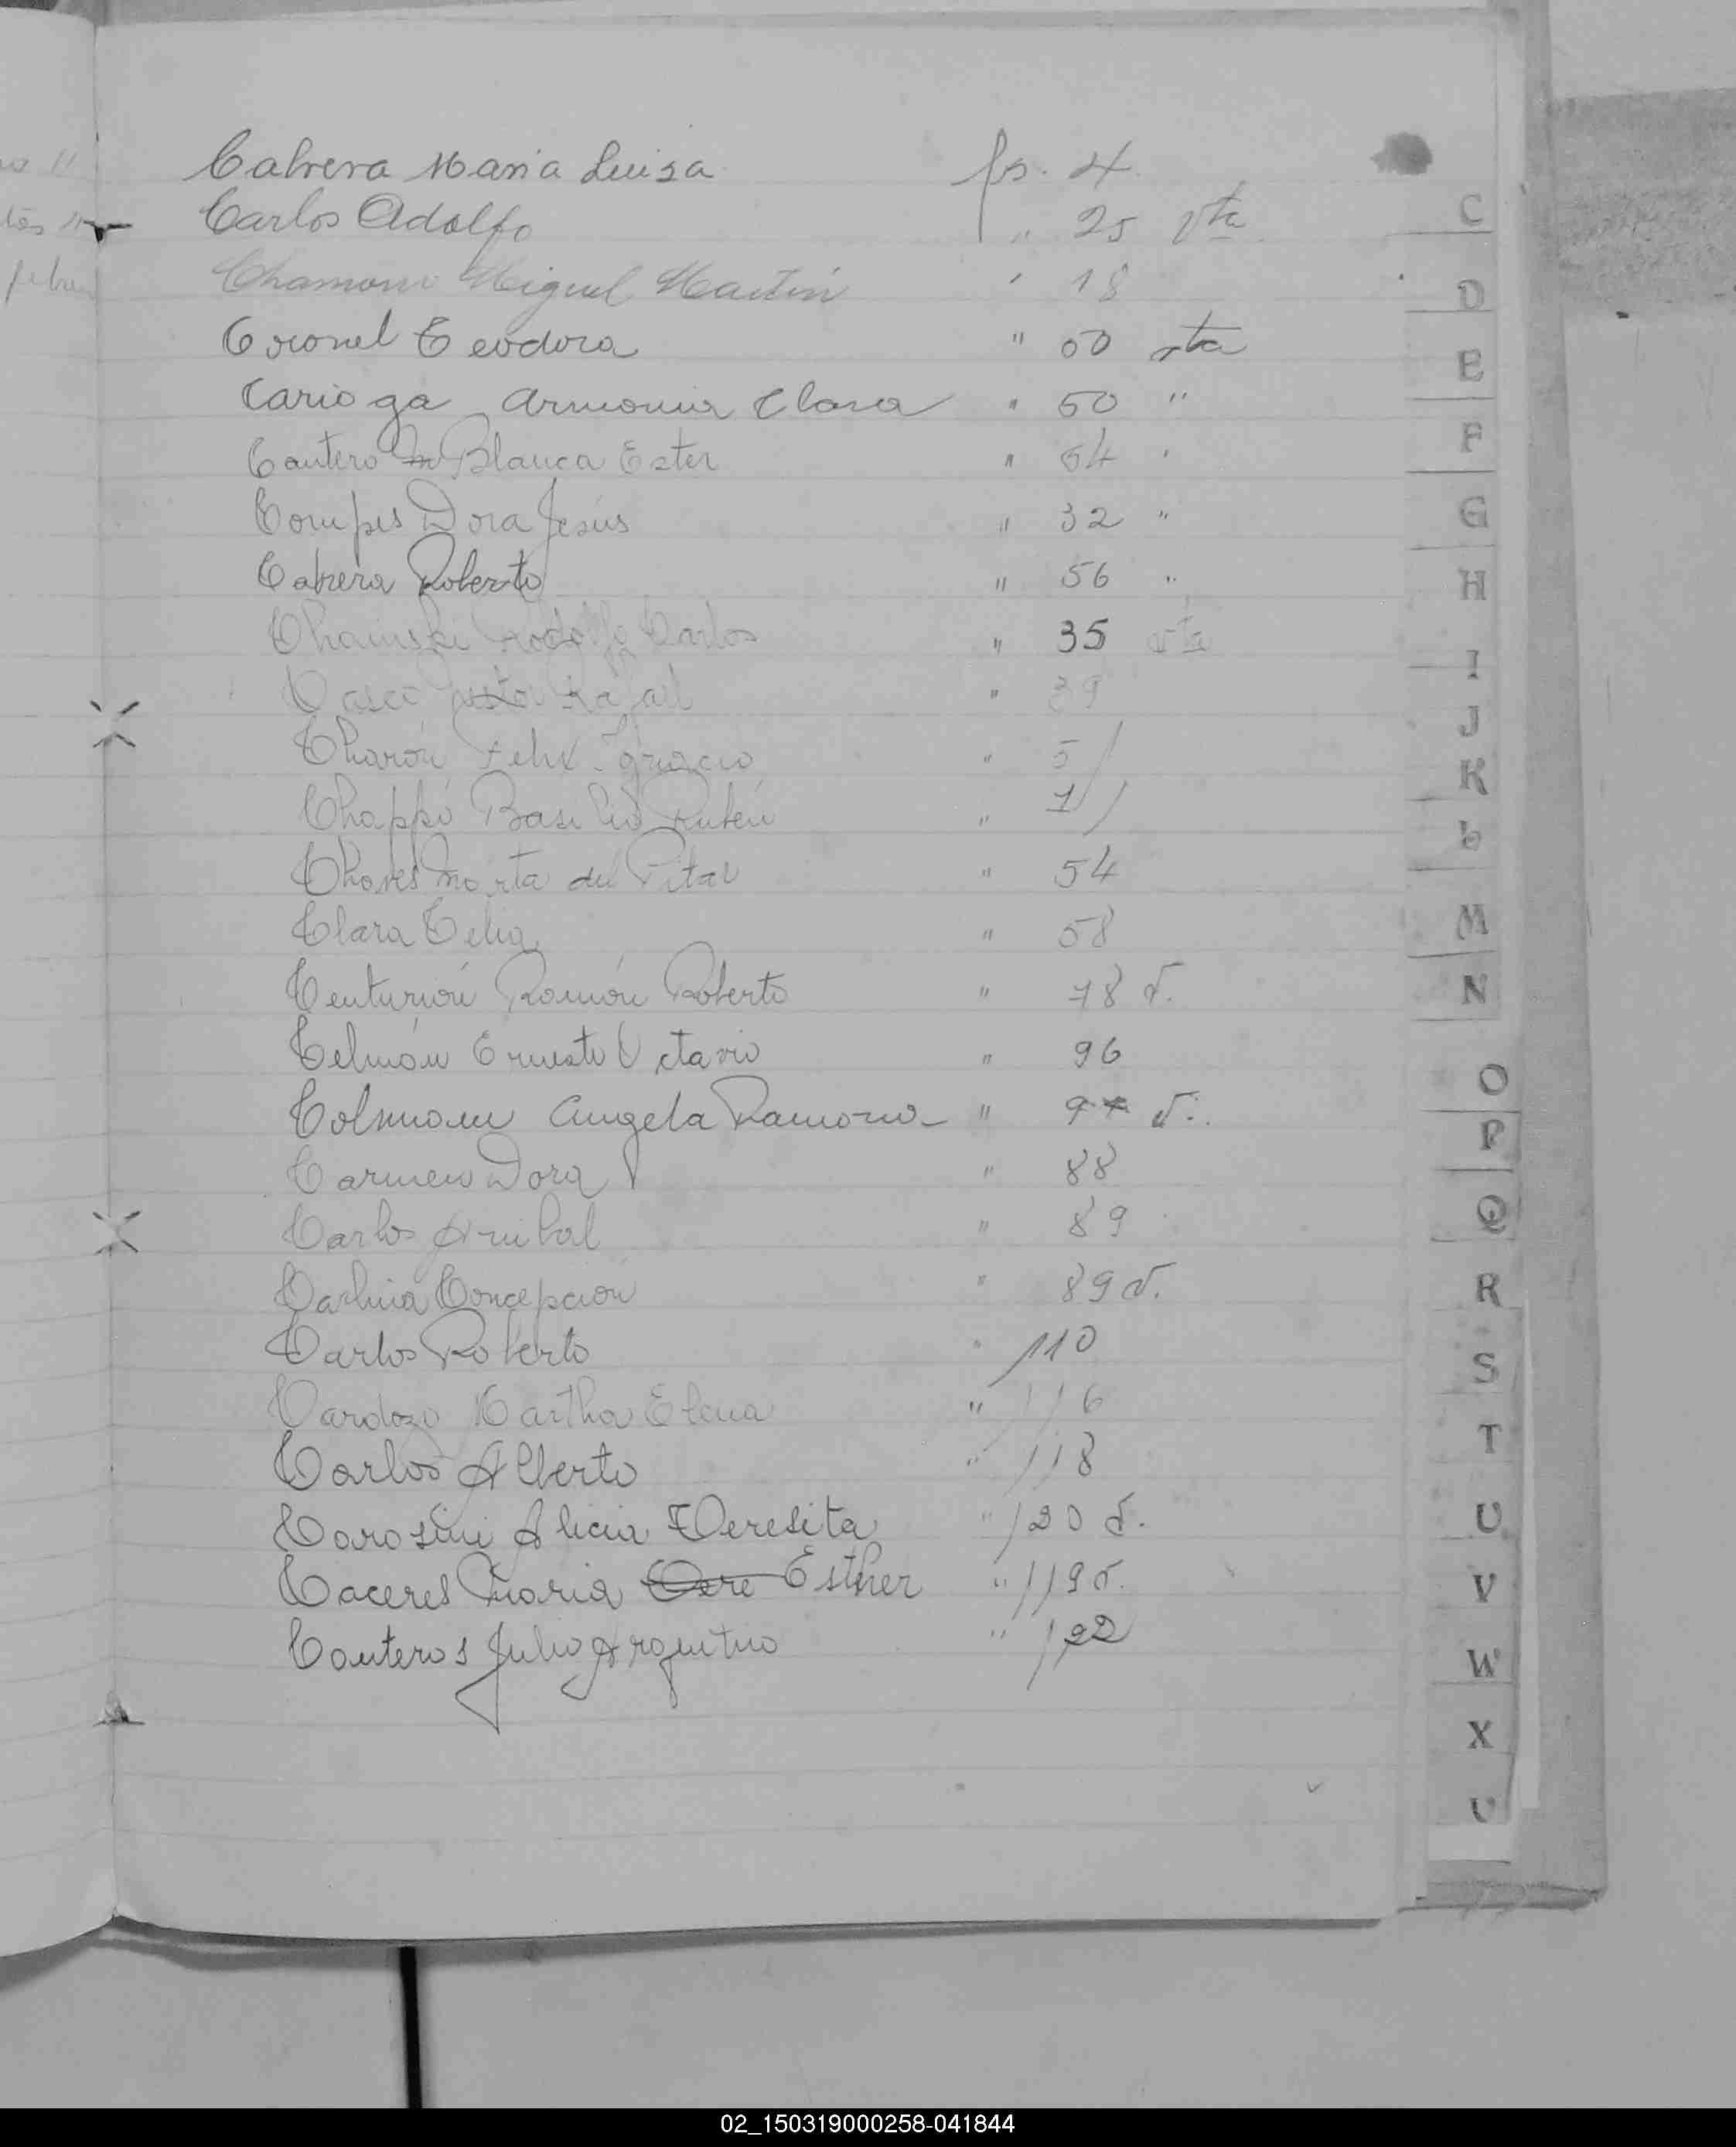 Cabrera Maria Luisa fs. 4
Carlos Adolfo " 25 vta
Chamorri Miguel Martín " 18
Coronel Teodora " 50 vta
Carioga Armonia Clara " 50 "
Cantero Blanca Ester " 54 "
Compes Dora Jesús " 32 "
Cabrera Roberto " 56 "
Chainski Rodolfo Carlos " 35 vta
Casco Rafael " 39
Charón Felix Ignacio " 51
Chappó Basilio Rubén "
Chaves Marta del Pilar " 54
Clara Celia " 58
Centurión Ramón Roberto " 78 v.
Celmán Ernesto Octavio " 96
Colmann Angela Ramona " v.
Carmen Dora " 88
Carlos Anibal " 89
Carlina Concepción " 89 v.
Carlos Roberto " 110
Cardozo Martha Elena " 116
Carlos Alberto " 118
Carosini Alicia Teresita " 120 v.
Caceres Maria Esther " 119 v.
Canteros Julio Argentino " 122
C
D
E
F
G
H
I
J
K
L
M
N
O
P
Q
R
S
T
U
V
W
X
02_150319000258-041844